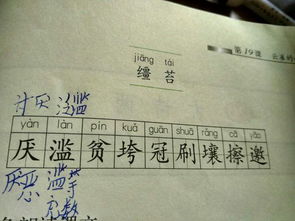 第19课 云雀的
jiāng tái
缰 苔
讨厌 泛滥
yàn làn pín kuǎ guān shuā rǎng cā yāo
厌 滥 贫 垮 冠 刷 壤 擦 邀
厌恶 滥竽
充数
朗读课文